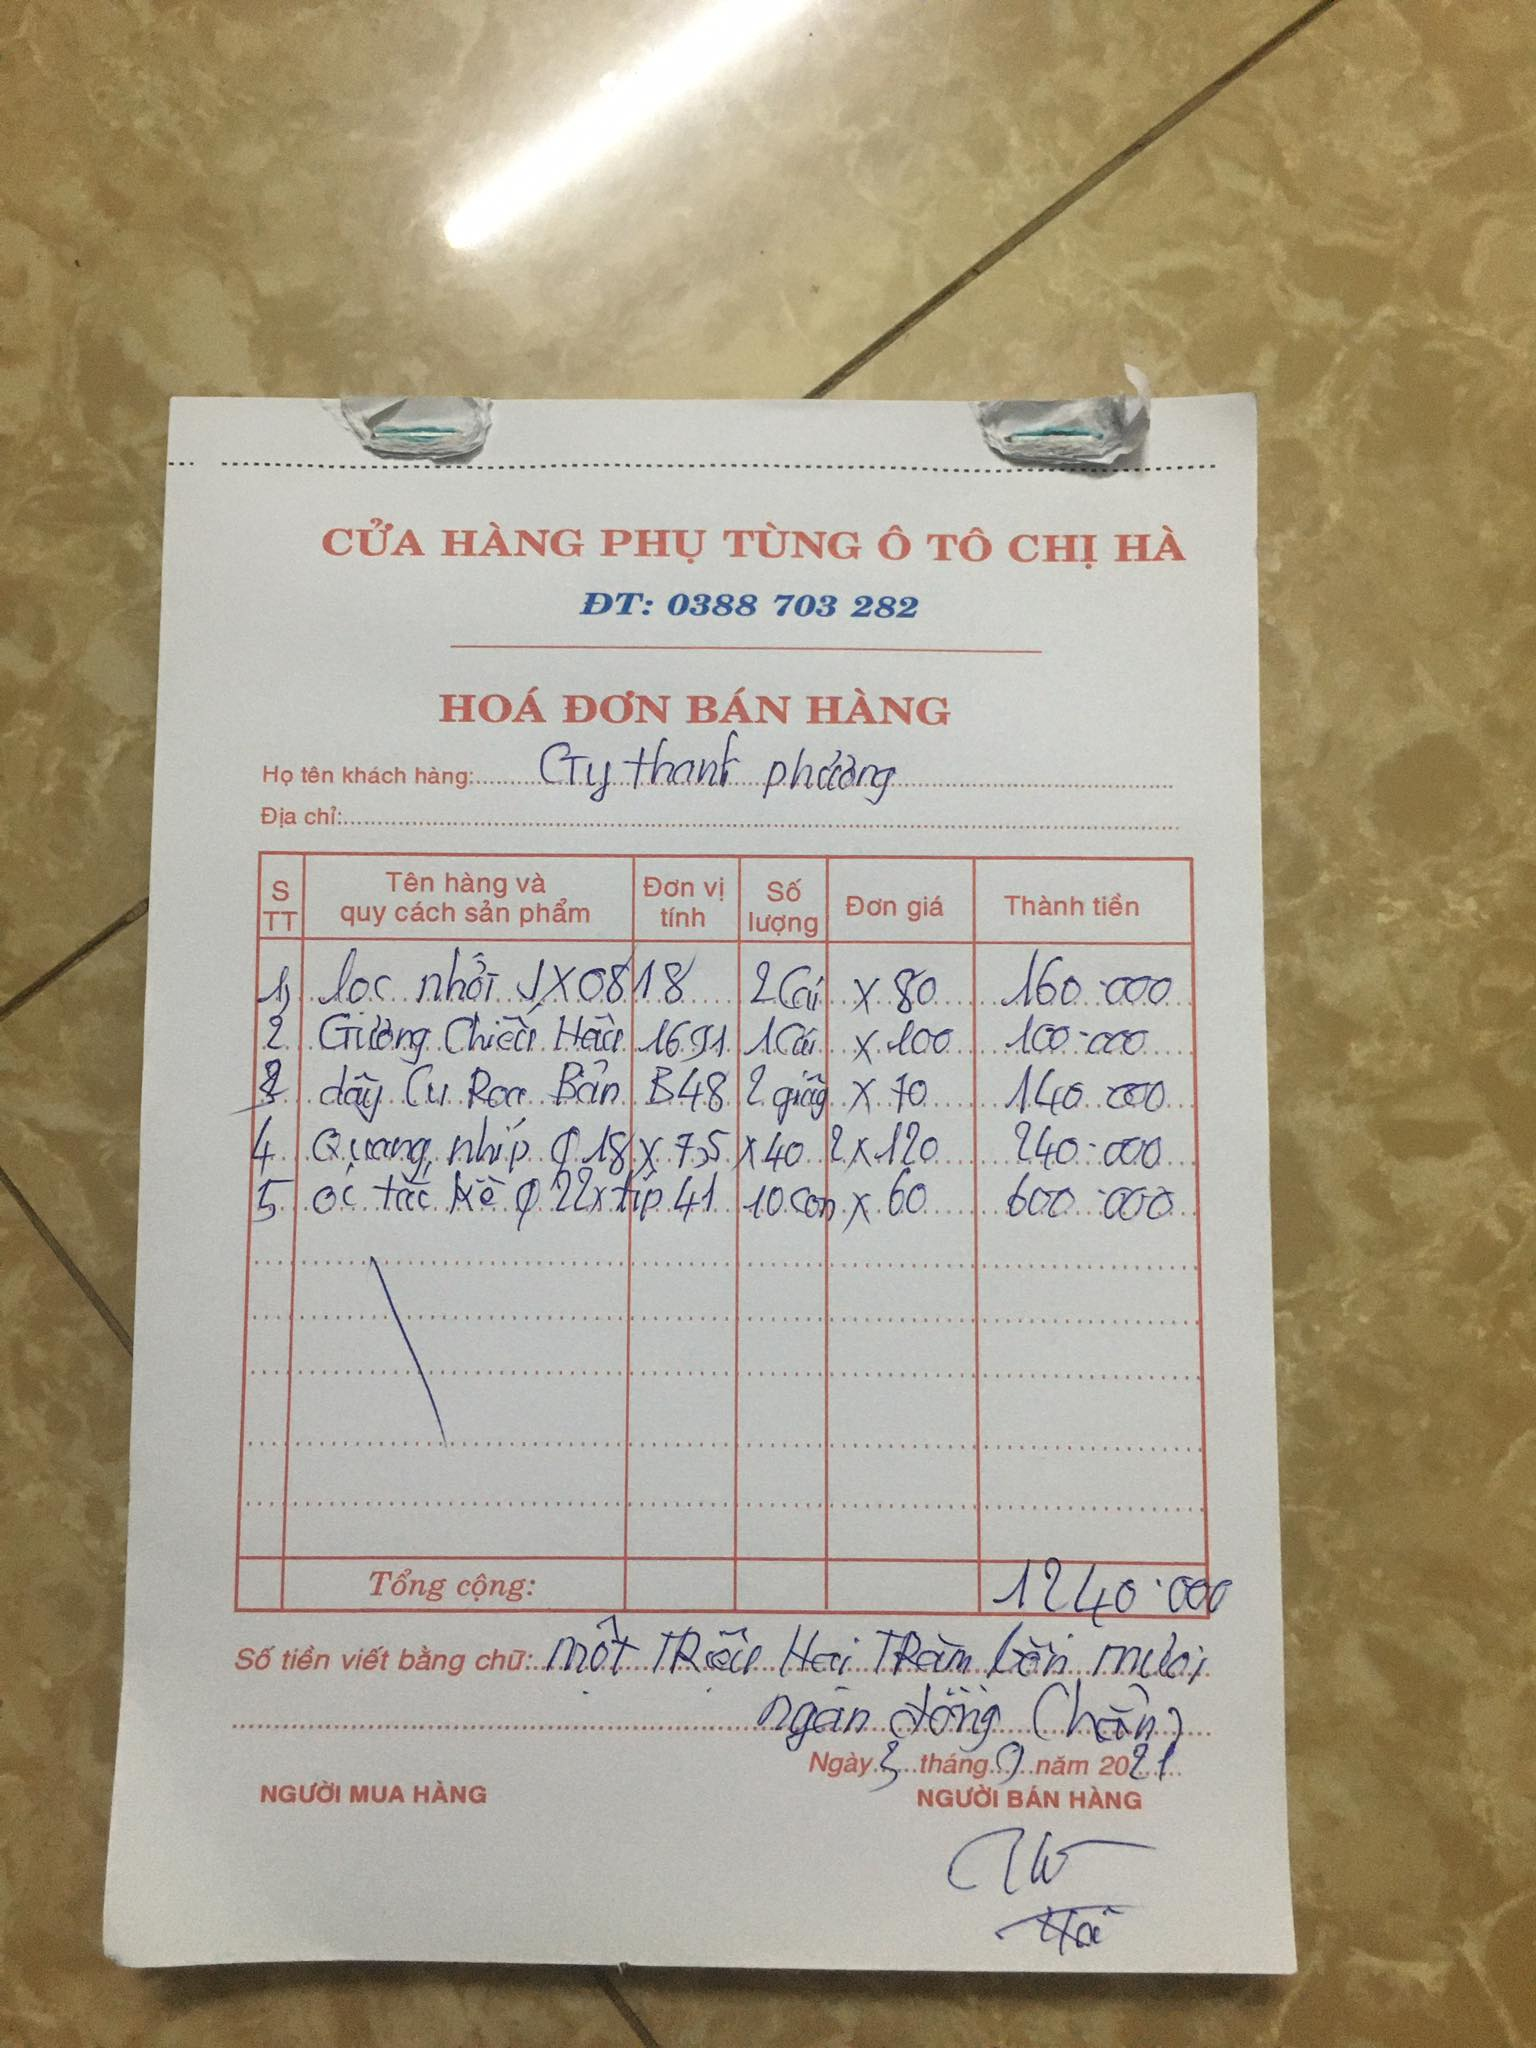 CỬA HÀNG PHỤ TÙNG Ô TÔ CHỊ HÀ
ĐT: 0388 703 282
HOÁ ĐƠN BÁN HÀNG
Họ tên khách hàng: CTy thanh phương
Địa chỉ:
S TT Tên hàng và quy cách sản phẩm Đơn vị tính Số lượng Đơn giá Thành tiền
1, lọc nhớt JX0818 2 Cái x 80 160.000
2 Gương Chiếu Hậu 1691 1 Cái x 100 100.000
3 dây Cu Roa Bản B48 2 giây x 70 140.000
4 Quang nhíp Φ 18 x 7,5 x 40 2 x 120 240.000
5 ốc tắc kê Φ 22 x típ 41 10 con x 60 600.000
Tổng cộng: 1240.000
Số tiền viết bằng chữ: một TRiệu Hai TRăm bốn mươi
ngàn đồng Chẵn
Ngày 3 tháng 9 năm 2021
NGƯỜI MUA HÀNG NGƯỜI BÁN HÀNG